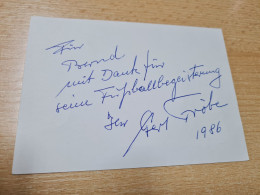 Für
Bernd
mit Dank für
seine Fußballbegeisterung
Ihr Gert Fröbe
1986